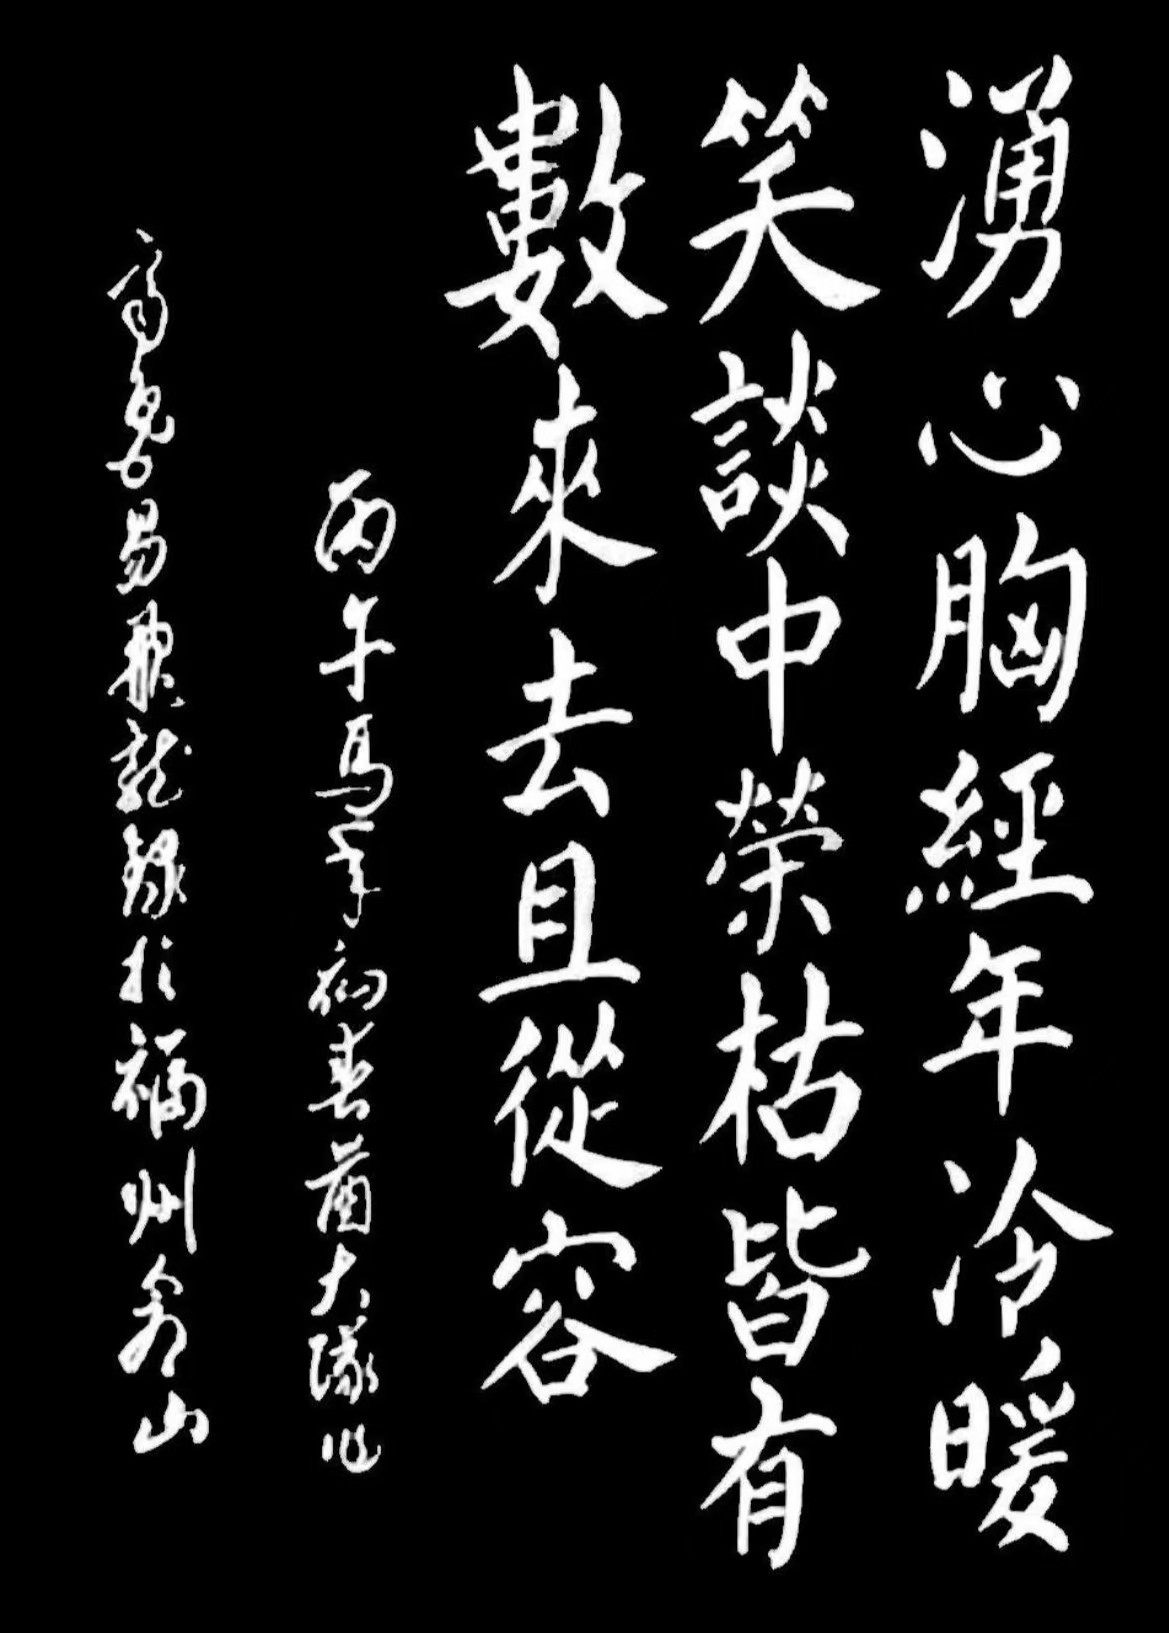 湧心胸經年冷暖
笑談中榮枯皆有
數來去且從容
丙午馬年初春 大隊作
高 易 龍錄於福州 山